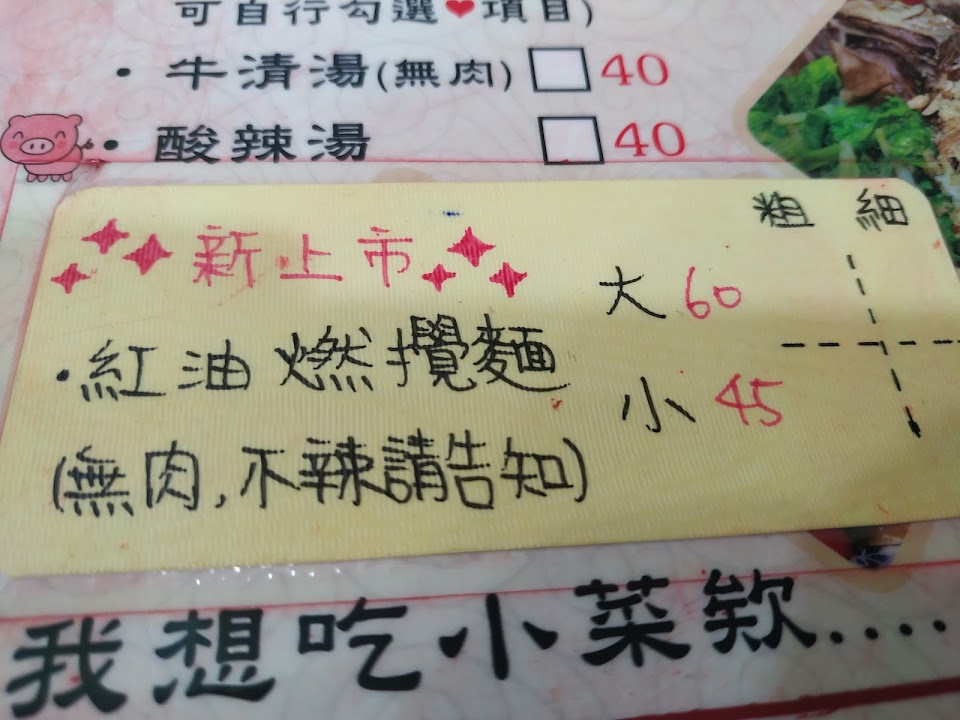 可自行勾選❤項目)
・牛清湯(無肉) □ 40
・酸辣湯 □ 40
粗 細
新上市
大 60
・紅油燃攪麵
小 45
(無肉,不辣請告知)
我想吃小菜欸....